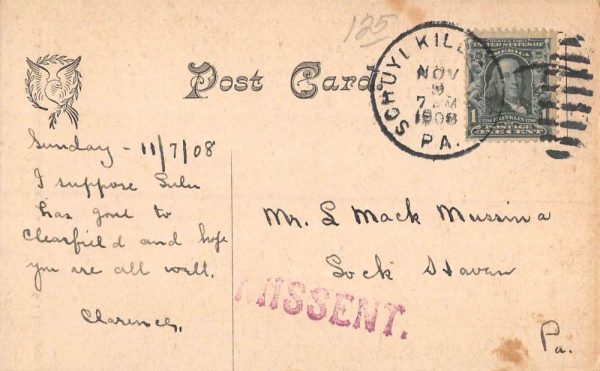 125
Post Card
SCHUYLKILL
NOV
9
7 AM
1908
PA.
UNITED STATES OF
AMERICA
1
FRANKLIN
POSTAGE
ONE CENT
Sunday - 11/7/08
I suppose Lulu
has gone to
Clearfield and hope
you are all well.
Clarence.
Mr. L Mack Mussina
Lock Haven
Pa.
MISSENT.